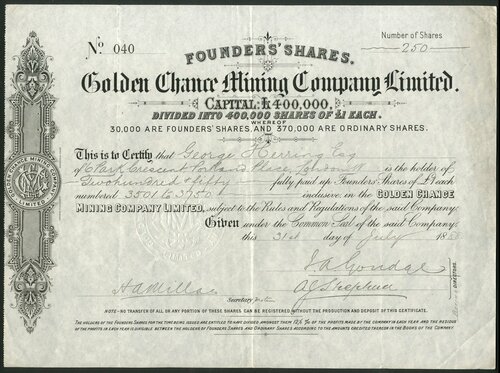 Number of Shares
No. 040
250
FOUNDERS' SHARES.
Golden Chance Mining Company Limited.
CAPITAL: £400,000,
DIVIDED INTO 400,000 SHARES OF £1 EACH.
WHEREOF
30,000 ARE FOUNDERS' SHARES, AND 370,000 ARE ORDINARY SHARES.
This is to Certify that George Herring Esq
of Park Crescent Portland Place, London W is the holder of
Two hundred & fifty fully paid up Founders' Shares of £1 each
numbered 3501 to 3750 inclusive in the GOLDEN CHANCE
MINING COMPANY LIMITED, subject to the Rules and Regulations of the said Company.
Given under the Common Seal of the said Company
this 31st day of July 18
DIRECTORS.
Secretary
NOTE—NO TRANSFER OF ALL OR ANY PORTION OF THESE SHARES CAN BE REGISTERED WITHOUT THE PRODUCTION AND DEPOSIT OF THIS CERTIFICATE.
THE HOLDERS OF THE FOUNDERS SHARES FOR THE TIME BEING ISSUED ARE ENTITLED TO HAVE DIVIDED AMONGST THEM 12½ % OF THE PROFITS MADE BY THE COMPANY IN EACH YEAR AND THE RESIDUE
OF THE PROFITS IN EACH YEAR IS DIVISIBLE BETWEEN THE HOLDERS OF FOUNDERS SHARES AND ORDINARY SHARES ACCORDING TO THE AMOUNTS CREDITED THEREON IN THE BOOKS OF THE COMPANY
GOLDEN CHANCE MINING COMPANY
LIMITED